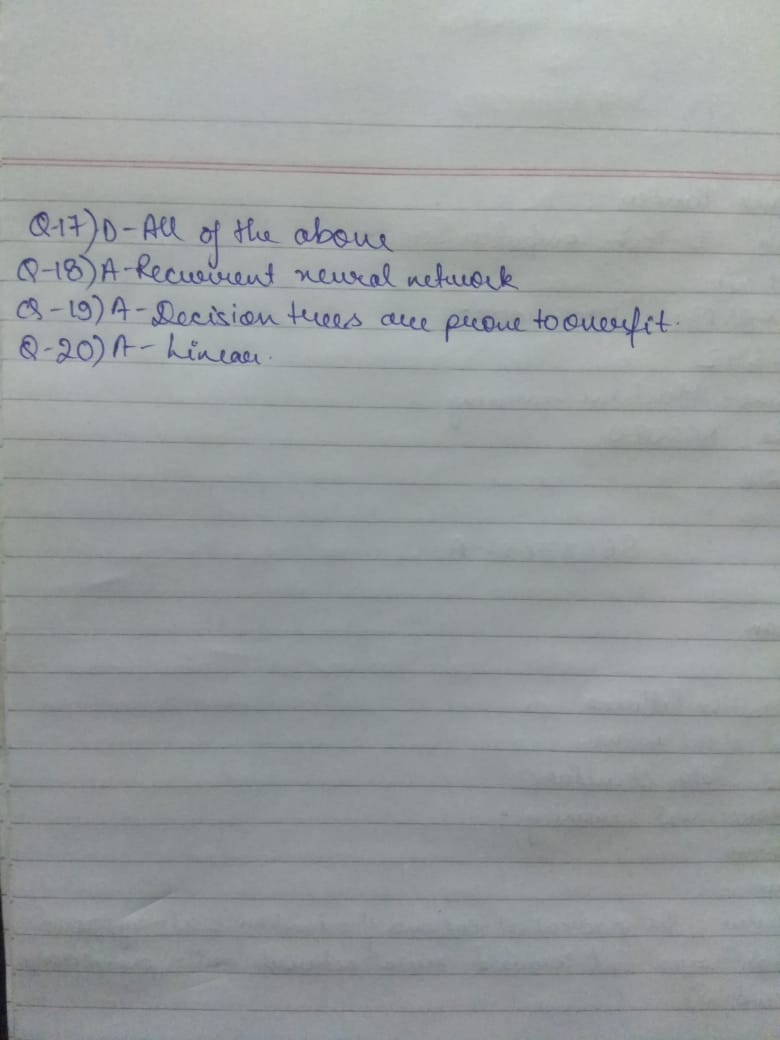 Q-17) D-All of the above
Q-18) A-Recurrent neural network
Q-19) A-Decision trees are prone to overfit.
Q-20) A- Linear.